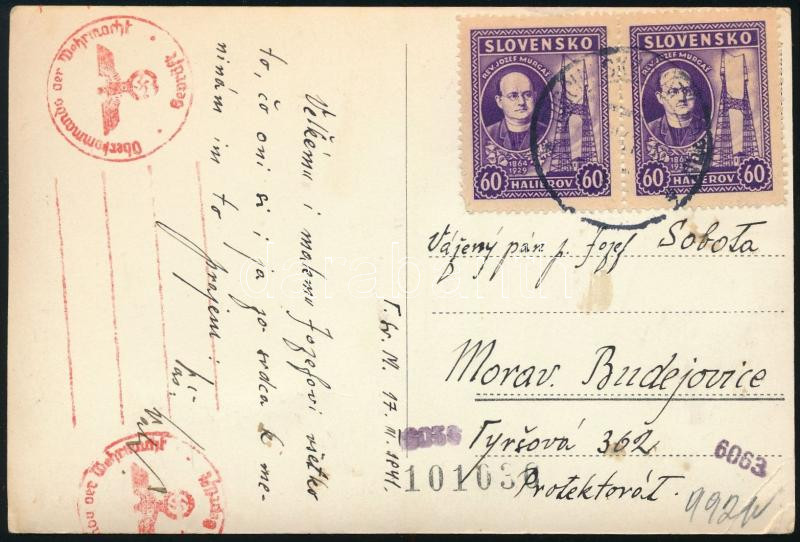 Oberkommando der Wehrmacht
Geprüft
SLOVENSKO
REV. JOZEF MURGAŠ
1864
1929
60 HALIEROV 60
SLOVENSKO
REV. JOZEF MURGAŠ
60 HALIEROV 60
Veľkému i malému Jozefovi všetko
to, čo oni si i ja zo srdca k me-
ninám im to prajem.
T. sv. M. 17. III. 1941.
Vážený pán p. Jozef Sobota
Morav. Budejovice
Tyršová 362
Protektorát.
6063
101036
992
der Wehrmacht